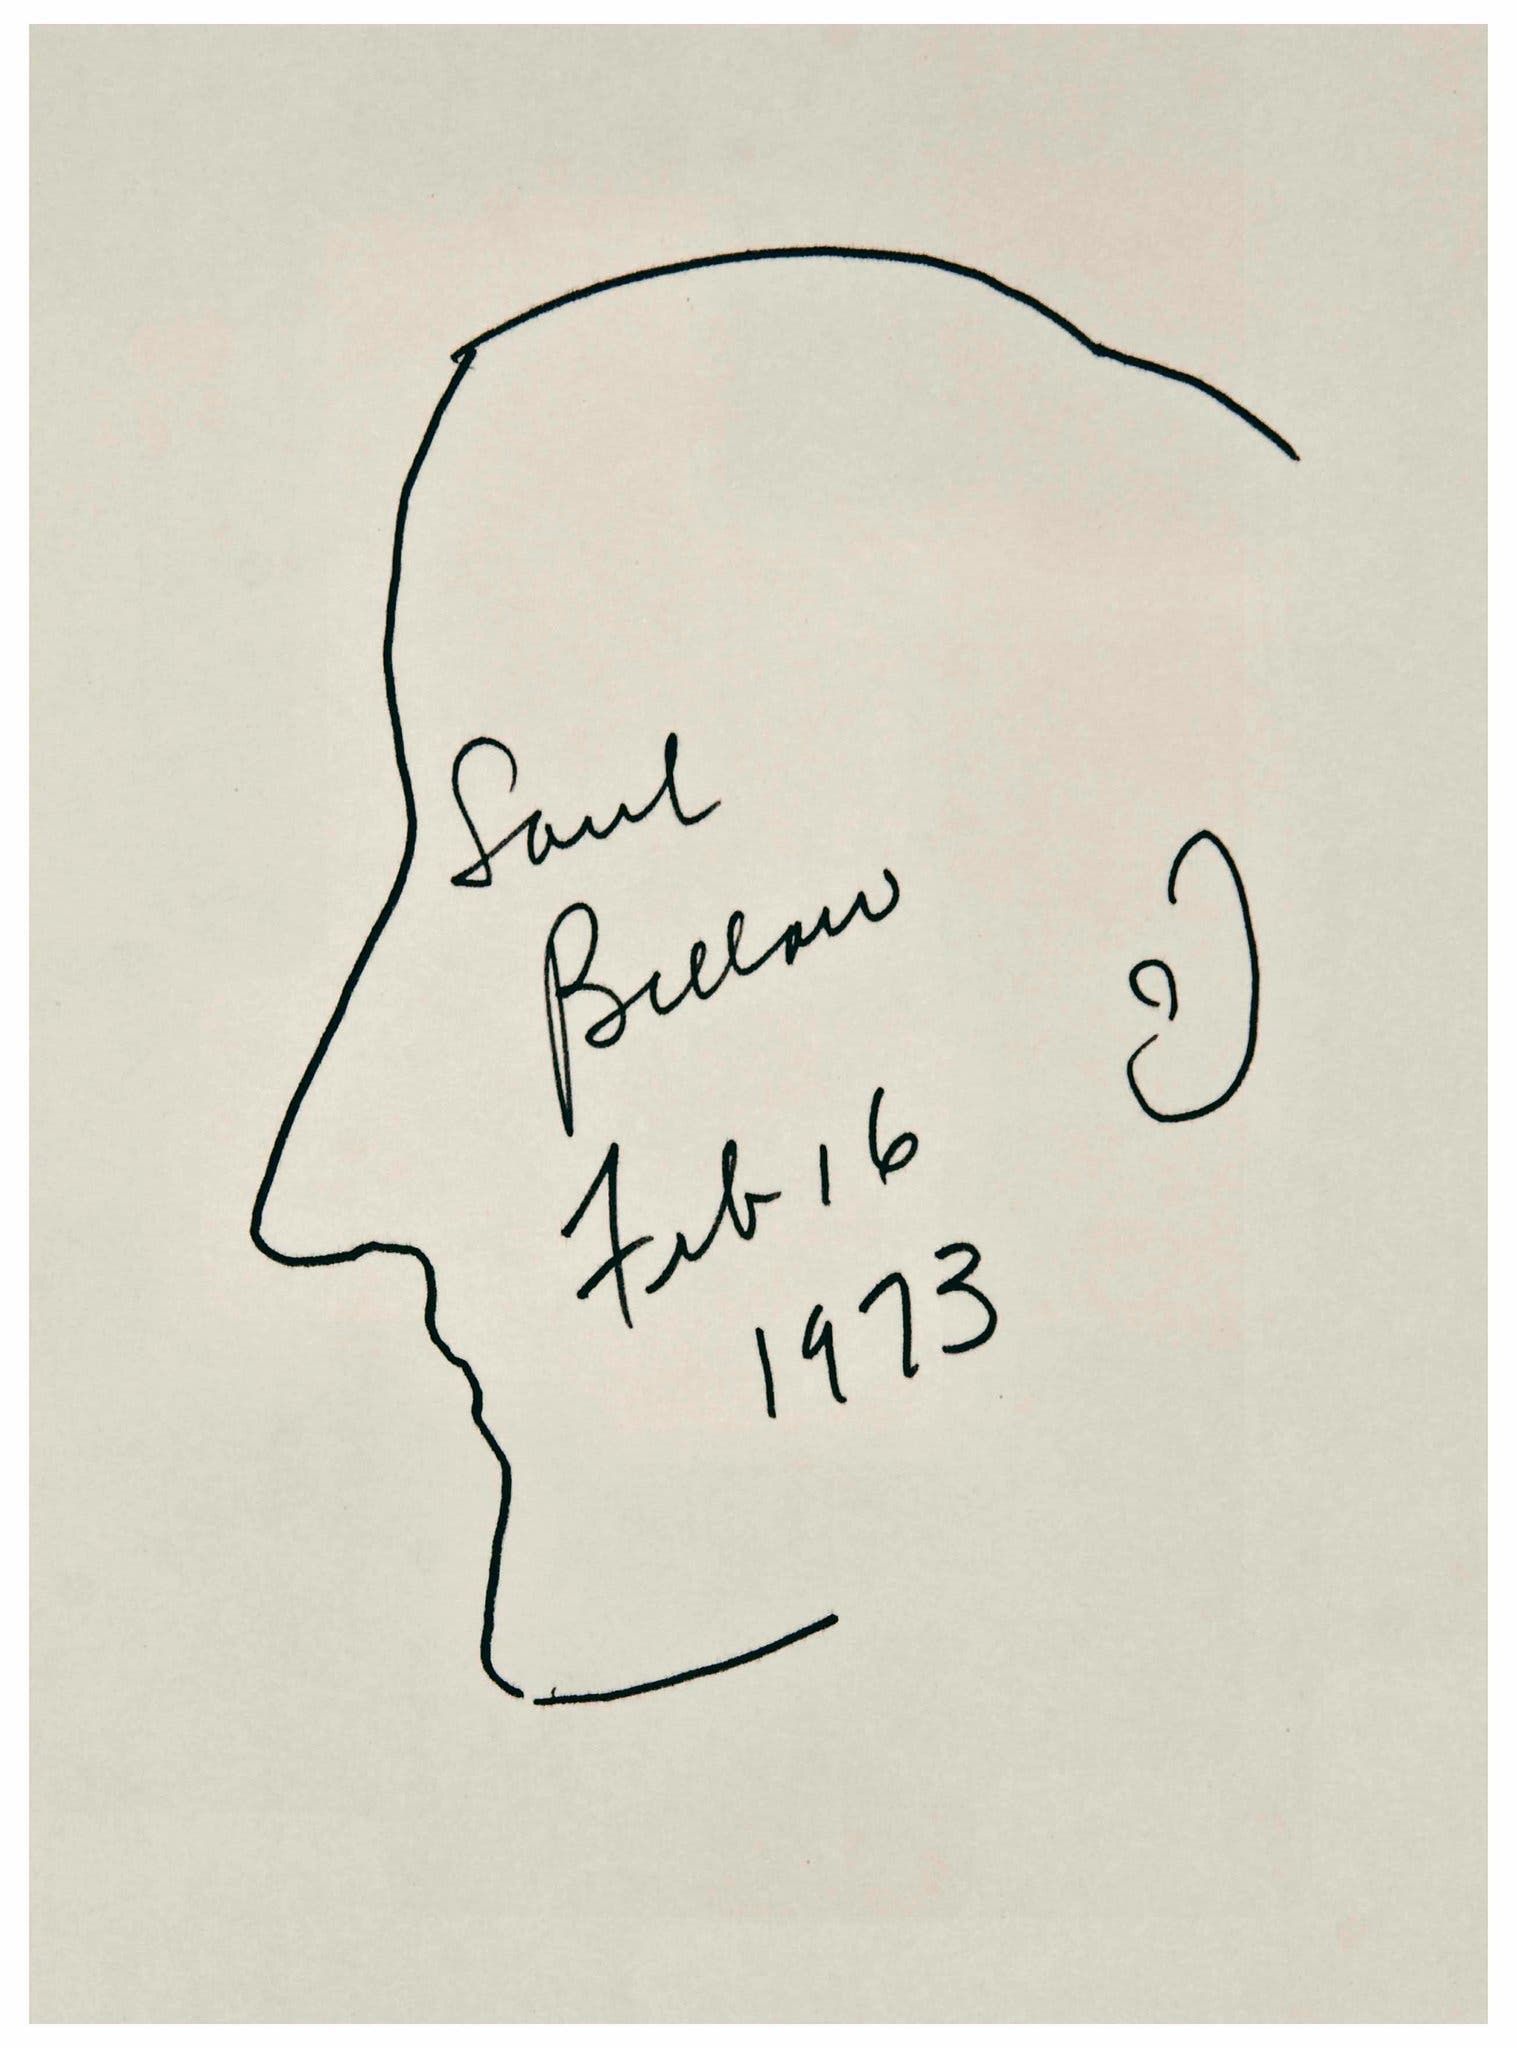 Saul
Bellow
Feb 16
1973